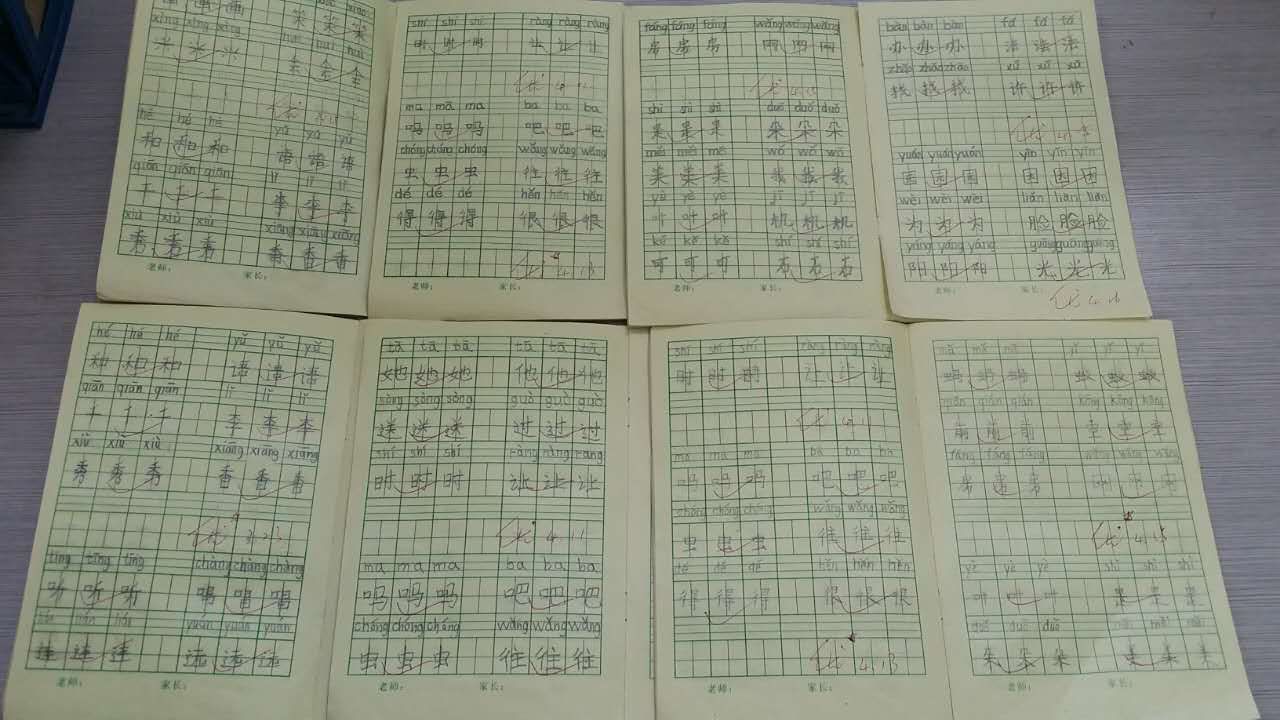 xīng xīng xīng
米 米 米
会 会 会
hé hé hé yǔ yǔ yǔ
和 和 和 语 语 语
qiān qiān qiān lǐ
千 千 千 李 李 李
xiù xiù xiù xiāng xiāng xiāng
秀 秀 秀 香 香 香
老师: 家长:
shí shí shí ràng ràng ràng
时 时 时 让 让 让
优 4.11
ma ma ma ba ba ba
吗 吗 吗 吧 吧 吧
chóng chóng chóng wǎng wǎng wǎng
虫 虫 虫 往 往 往
dé dé dé hěn hěn hěn
得 得 得 很 很 很
优 4.13
老师: 家长:
fáng fáng fáng wǎng wǎng wǎng
房 房 房 网 网 网
优 4.15
duǒ duǒ duǒ
朵 朵 朵
wǒ wǒ wǒ
我 我 我
yè yè yè jī jī jī
叶 叶 叶 机 机 机
kě kě kě shí shí shí
可 可 可 石 石 石
老师: 家长:
bàn bàn bàn fǎ fǎ fǎ
办 办 办 法 法 法
zhǎo zhǎo zhǎo xǔ xǔ xǔ
找 找 找 许 许 许
优
yuán yuán yuán yīn yīn yīn
园 园 园 因 因 因
wèi wèi wèi liǎn liǎn liǎn
为 为 为 脸 脸 脸
yáng yáng yáng guāng guāng guāng
阳 阳 阳 光 光 光
老师: 家长:
优
hé hé hé yǔ yǔ yǔ
和 和 和 语 语 语
qiān qiān qiān lǐ lǐ
千 千 千 李 李 李
xiù xiù xiù xiāng xiāng xiāng
秀 秀 秀 香 香 香
优
tīng tīng tīng chàng chàng chàng
听 听 听 唱 唱 唱
lián lián yuǎn yuǎn yuǎn
连 连 连 远 远 远
老师: 家长:
tā tā tā tā tā tā
她 她 她 他 他 他
sòng sòng sòng guò guò guò
送 送 送 过 过 过
shí shí shí ràng ràng ràng
时 时 时 让 让 让
优 4.11
ma ma ma ba ba ba
吗 吗 吗 吧 吧 吧
chóng chóng chóng wǎng wǎng wǎng
虫 虫 虫 往 往 往
老师: 家长:
shí shí shí ràng ràng ràng
时 时 时 让 让 让
优 4.11
ma ma ma ba ba ba
吗 吗 吗 吧 吧 吧
chóng chóng chóng wǎng wǎng wǎng
虫 虫 虫 往 往 往
dé dé dé hěn hěn hěn
得 得 得 很 很 很
优 4.13
老师: 家长:
mǎ mǎ mǎ yǐ yǐ yǐ
蚂 蚂 蚂 蚁 蚁 蚁
qián qián qián kōng kōng kōng
前 前 前 空 空 空
fáng fáng fáng wǎng wǎng wǎng
房 房 房 网 网 网
优 4.15
yè yè yè
叶 叶 叶
duǒ duǒ duǒ
朵 朵 朵
老师: 家长: